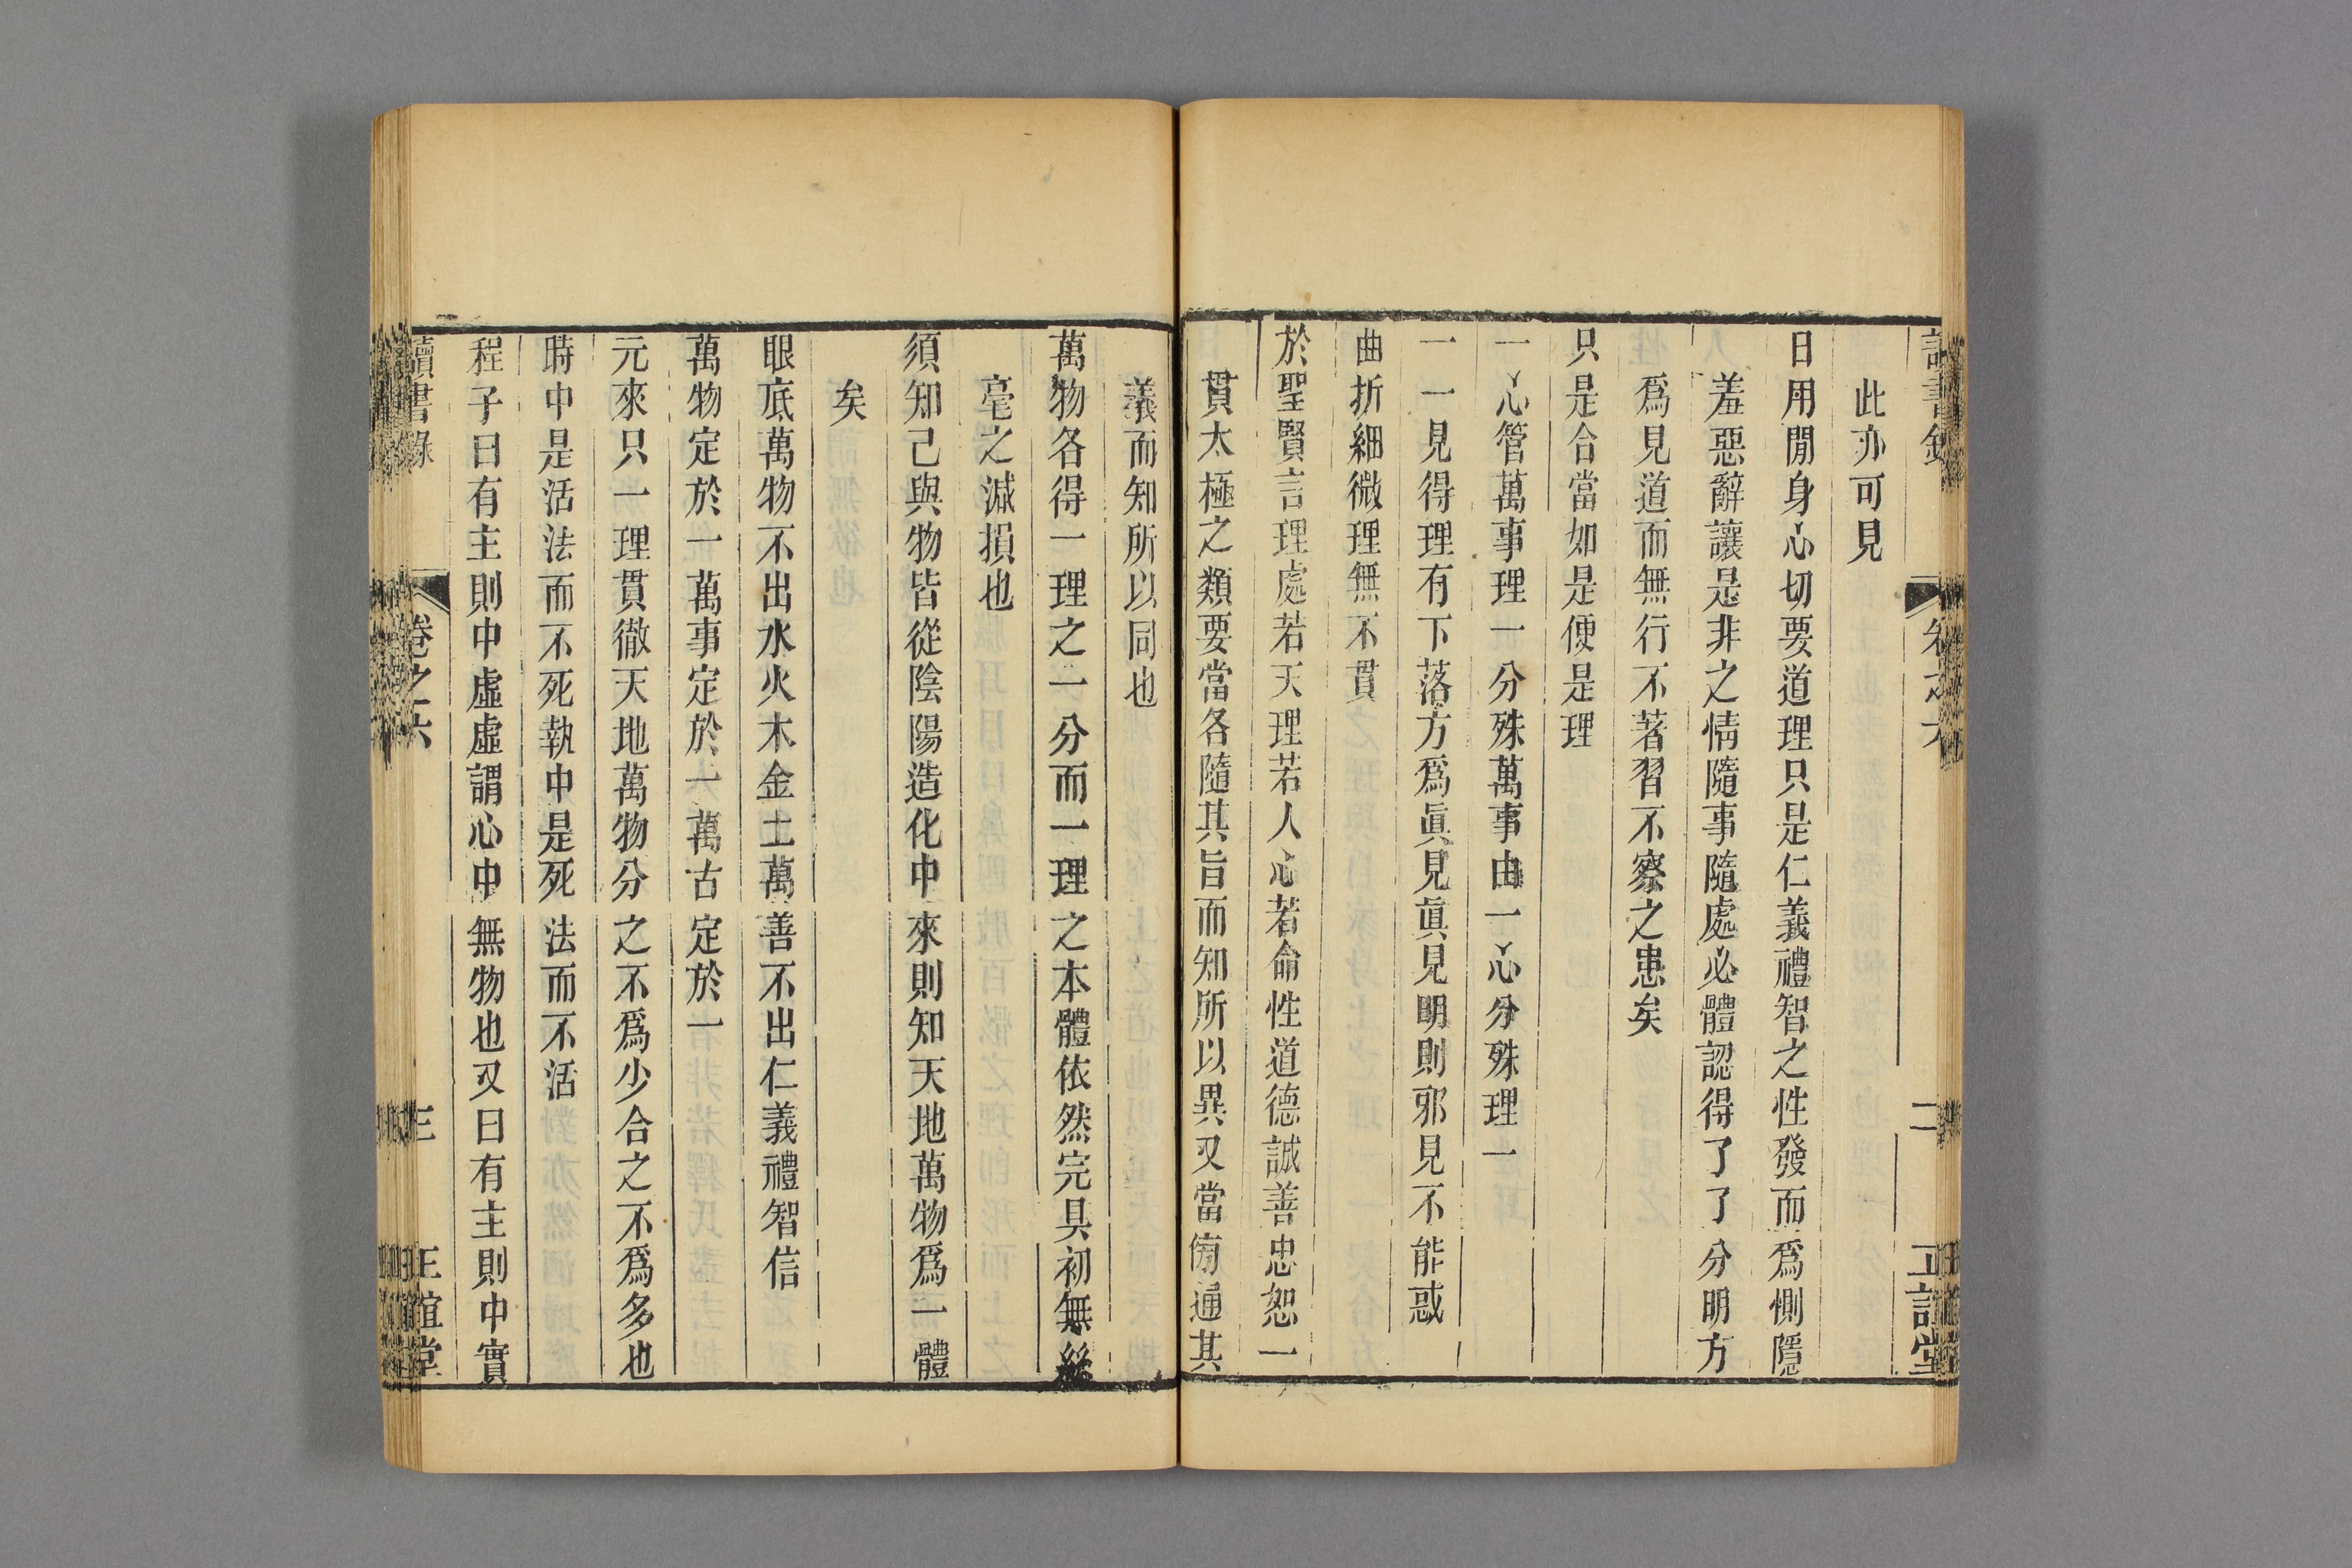 讀書錄 卷之六 二 正誼堂
此亦可見
日用閒身心切要道理只是仁義禮智之性發而爲惻隱
羞惡辭讓是非之情隨事隨處必體認得了了分明方
爲見道而無行不著習不察之患矣
只是合當如是便是理
一心管萬事理一分殊萬事由一心分殊理一
一一見得理有下落方爲眞見眞見明則邪見不能惑
曲折細微理無不貫
於聖賢言理處若天理若人心若命性道德誠善忠恕一
貫太極之類要當各隨其旨而知所以異又當傍通其
義而知所以同也
萬物各得一理之一分而一理之本體依然完具初無絲
毫之減損也
須知己與物皆從陰陽造化中來則知天地萬物爲一體
矣
眼底萬物不出水火木金土萬善不出仁義禮智信
萬物定於一萬事定於一萬古定於一
元來只一理貫徹天地萬物分之不爲少合之不爲多也
時中是活法而不死執中是死法而不活
程子曰有主則中虛虛謂心中無物也又曰有主則中實
讀書錄 卷之六 三 正誼堂